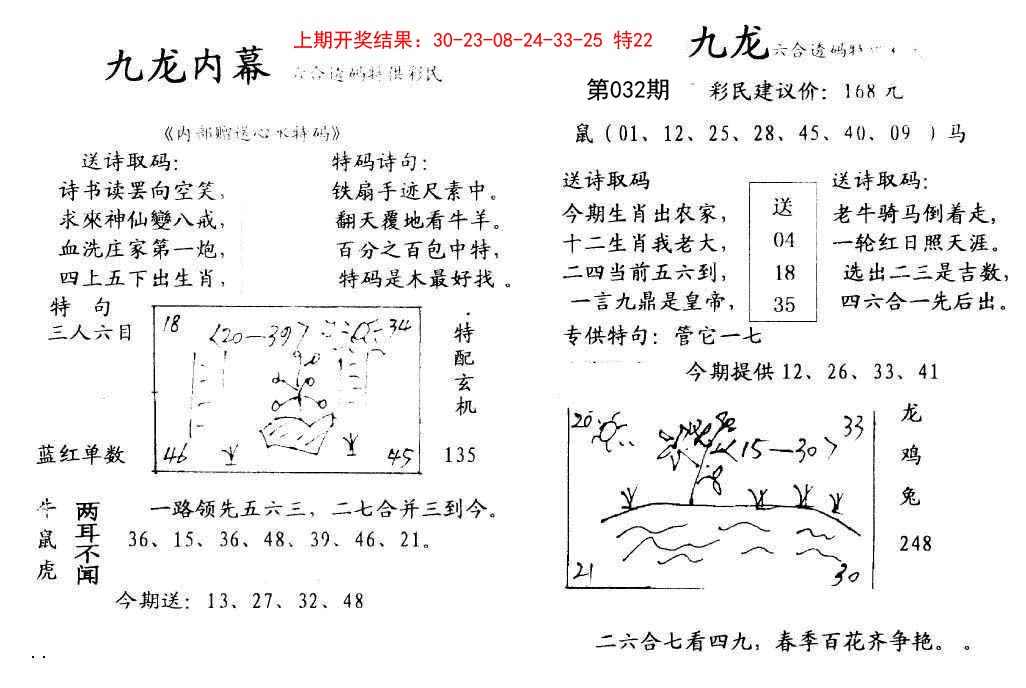 上期开奖结果：30-23-08-24-33-25 特22
九龙内幕 六合透码特供彩民
《内部赠送心水特码》
送诗取码：
诗书读罢向空笑，
求來神仙變八戒，
血洗庄家第一炮，
四上五下出生肖，
特码诗句：
铁扇手迹尺素中。
翻天覆地看牛羊。
百分之百包中特，
特码是木最好找。
特 句
三人六目
蓝红单数
18
〈20—39〉
34
46
45
特配玄机
135
牛
鼠
虎
两耳不闻
一路领先五六三，二七合并三到今。
36、15、36、48、39、46、21。
今期送：13、27、32、48
九龙 六合透码特
第032期
彩民建议价：168元
鼠（01、12、25、28、45、40、09 ）马
送诗取码
今期生肖出农家，
十二生肖我老大，
二四当前五六到，
一言九鼎是皇帝，
送
04
18
35
送诗取码：
老牛骑马倒着走，
一轮红日照天涯。
选出二三是吉数，
四六合一先后出。
专供特句：管它一七
今期提供12、26、33、41
20
33
〈15—30〉
21
30
龙
鸡
兔
248
二六合七看四九，春季百花齐争艳。。